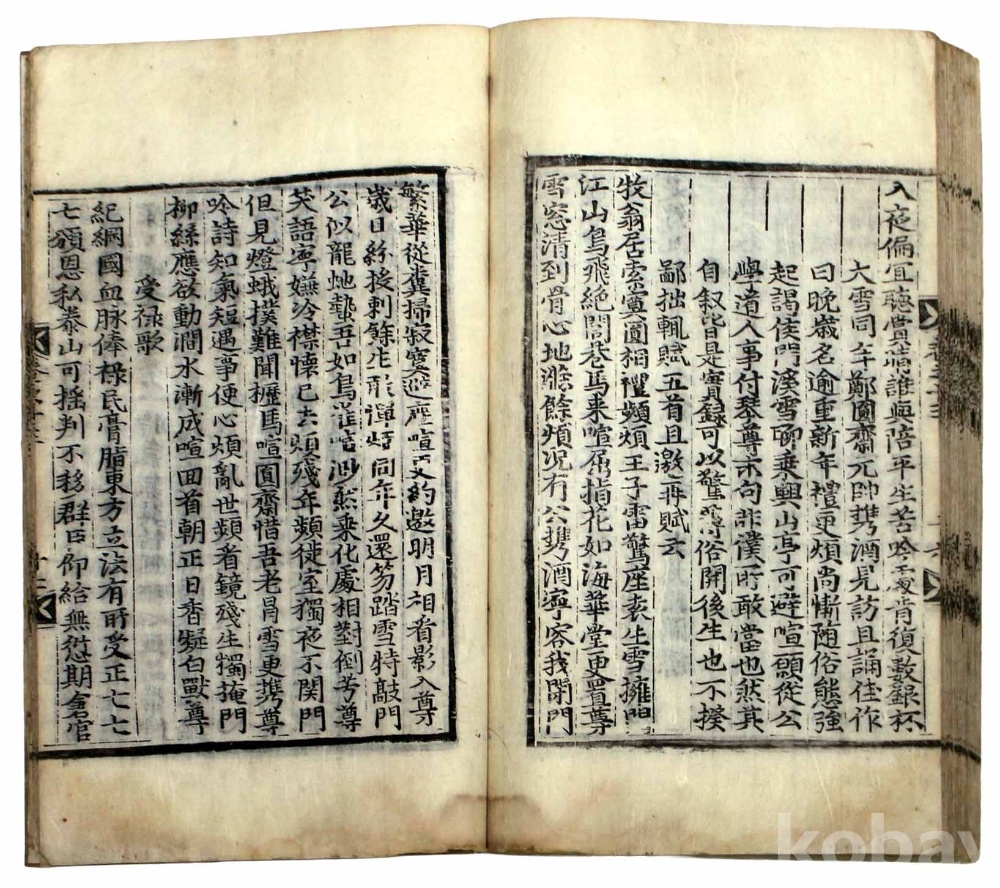 入夜偏宜聽賞音誰與陪平生苦吟處肯復數銀杯
大雪同年鄭圓齋元帥携酒見訪且誦佳作
曰晚歲名逾重新年禮更煩尚慚随俗態強
起謁侯門溪雪聊乗興山亭可避喧願從公
學道人事付琴尊末句非僕所敢當也然其
自叙皆是實録可以驚薄俗開後生也不揆
鄙拙輒賦五首且邀再賦云
牧翁居索寞圓相禮頻煩王子雷驚座袁生雪擁門
江山鳥飛絶閭巷馬来喧屈指花如海華堂更置尊
雪窓清到骨心地滌餘煩況有公携酒寧容我閉門
繁華從糞掃寂寞避塵喧更約邀明月相看影入尊
歲日紛挼剩餘生厭禪煩同年久還笏踏雪特敲門
公似龍虵蟄吾如鳥雀喧渺然乗化處相對倒芳尊
笑語寧嫌冷襟懷已去煩殘年頻徙室獨夜不関門
但見燈蛾撲難聞櫪馬喧圓齋惜吾老冐雪更携尊
吟詩知氣短遇事便心煩亂世頻看鏡殘生獨掩門
柳絲應欲動澗水漸成喧回首朝正日香凝白獸尊
受禄歌
紀綱國血脉俸禄民膏脂東方立法有所受正七七
七頒恩私泰山可揺判不移群臣仰給無愆期倉官
kobay